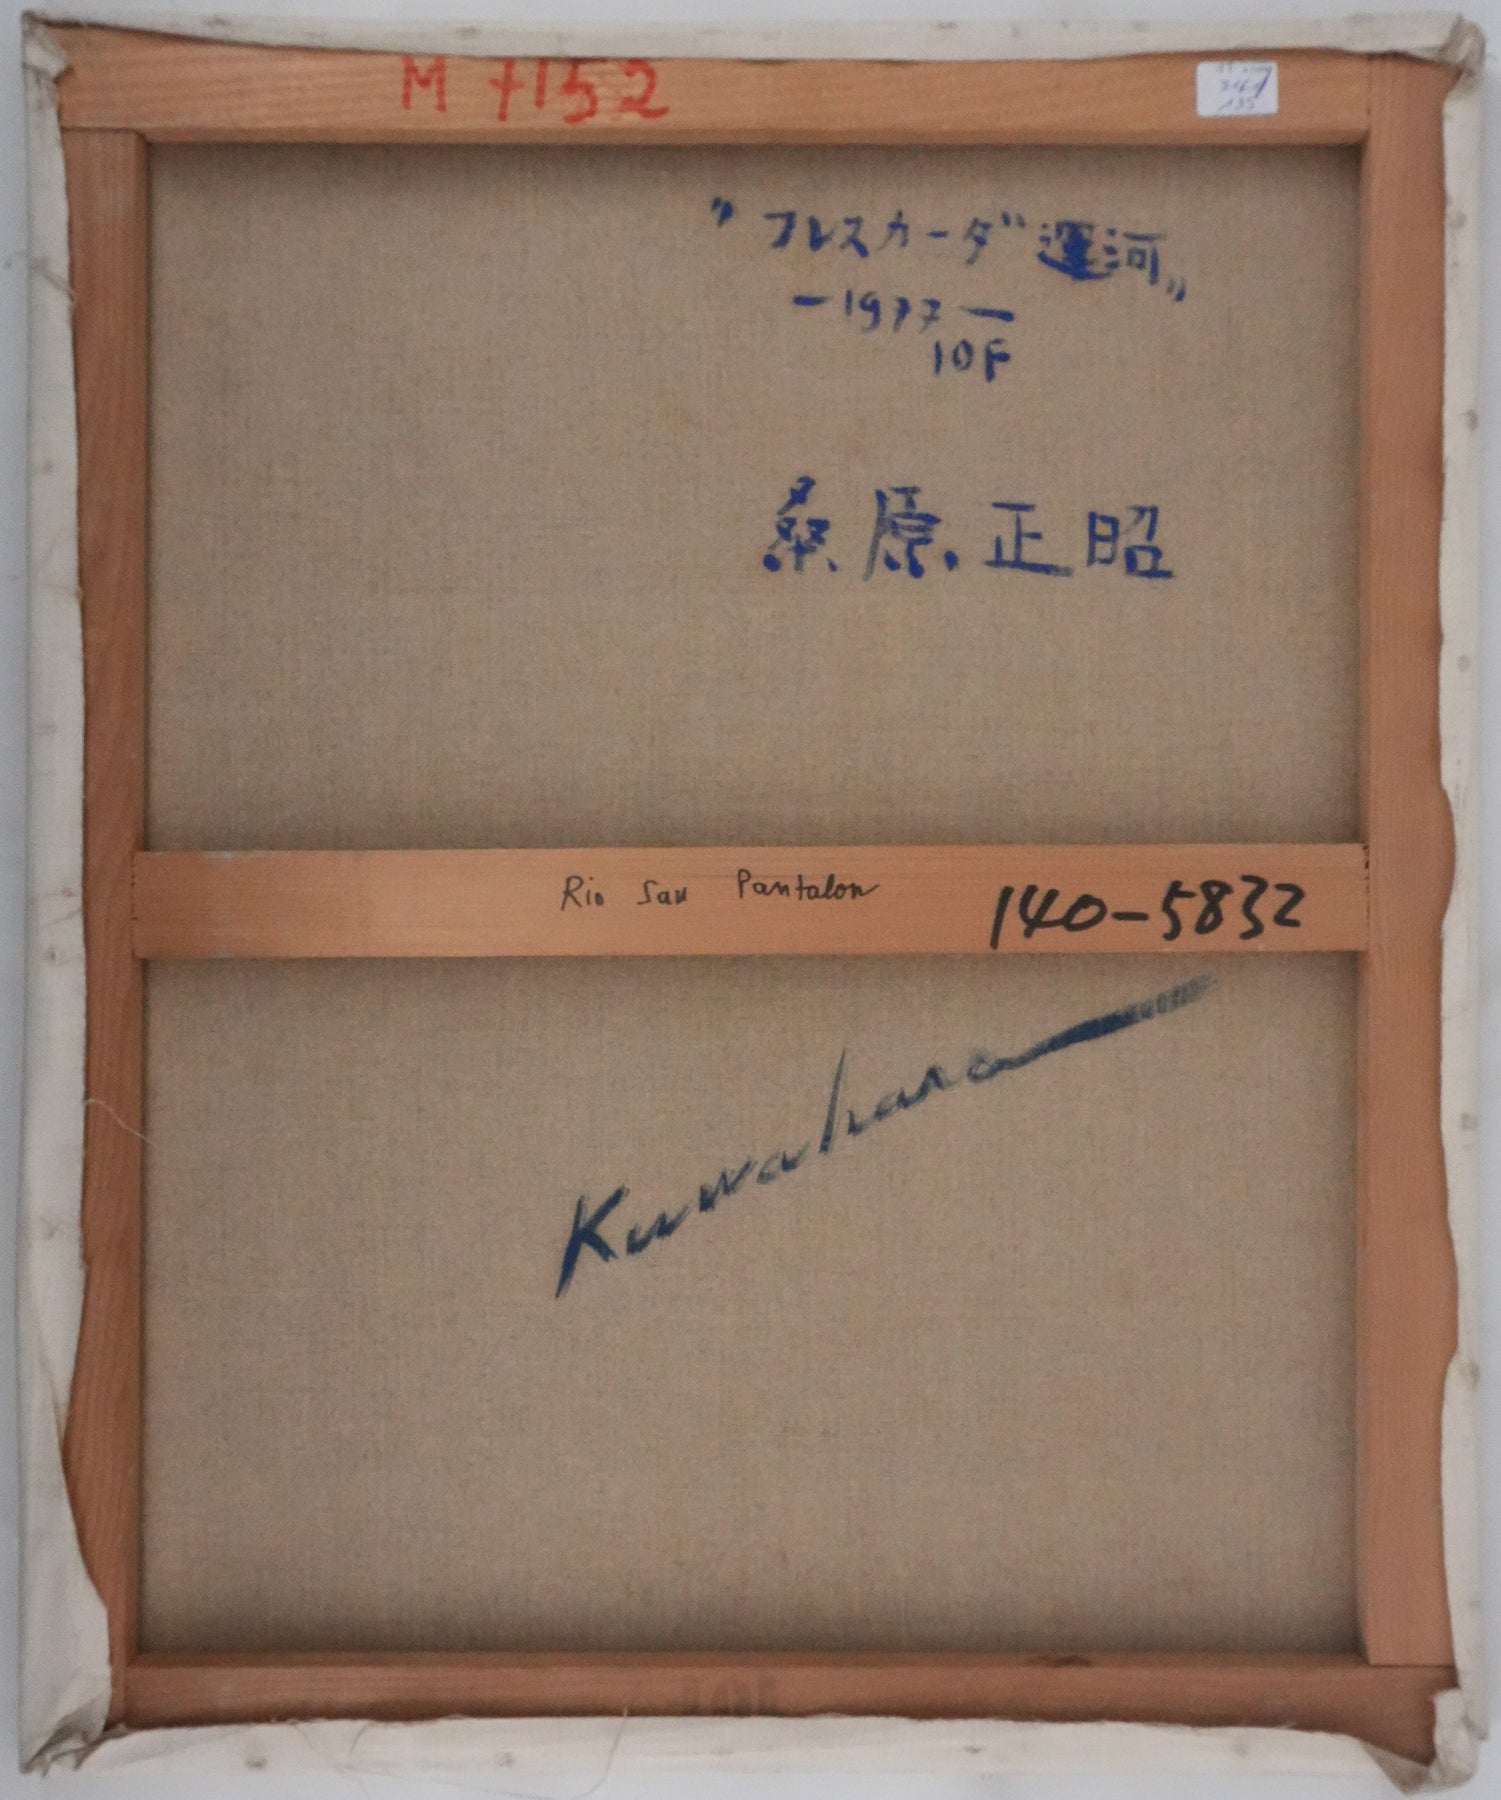 M 7152
"フレスカーダ"運河"
-1977-
10F
桑原正昭
Rio San Pantalon
140-5832
Kuwahara